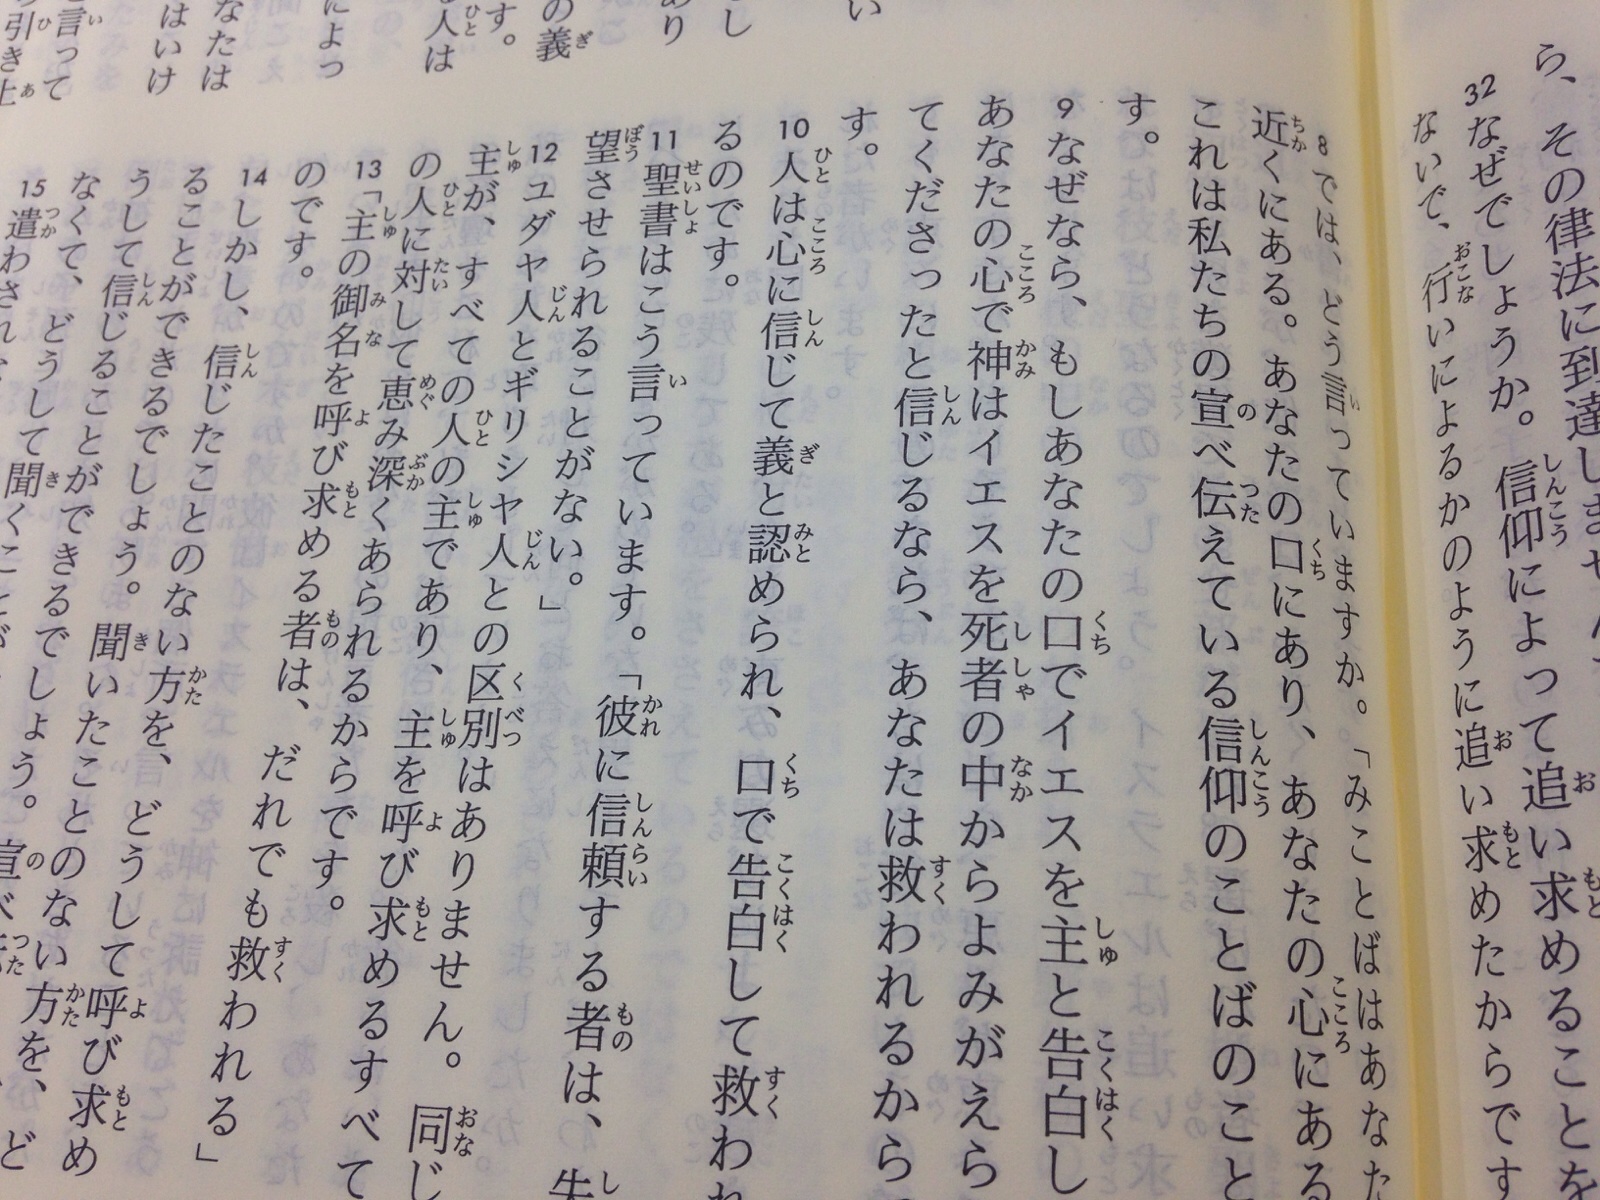 ら、その律法に到達しませんで
32なぜでしょうか。信仰によって追い求めることを
ないで、行いによるかのように追い求めたからです
8では、どう言っていますか。「みことばはあなた
近くにある。あなたの口にあり、あなたの心にある
これは私たちの宣べ伝えている信仰のことばのこと
す。
9なぜなら、もしあなたの口でイエスを主と告白し
あなたの心で神はイエスを死者の中からよみがえら
てくださったと信じるなら、あなたは救われるから
す。
10人は心に信じて義と認められ、口で告白して救われ
るのです。
11聖書はこう言っています。「彼に信頼する者は、失
望させられることがない。」
12ユダヤ人とギリシヤ人との区別はありません。同じ
主が、すべての人の主であり、主を呼び求めるすべて
の人に対して恵み深くあられるからです。
13「主の御名を呼び求める者は、だれでも救われる」
のです。
14しかし、信じたことのない方を、どうして呼び求め
ることができるでしょう。聞いたことのない方を、ど
うして信じることができるでしょう。宣べ伝
なくて、どうして聞くことが
15遣わされ
い
し
あり
の義
す。
人は
によっ
なたは
はいけ
言って
引き上